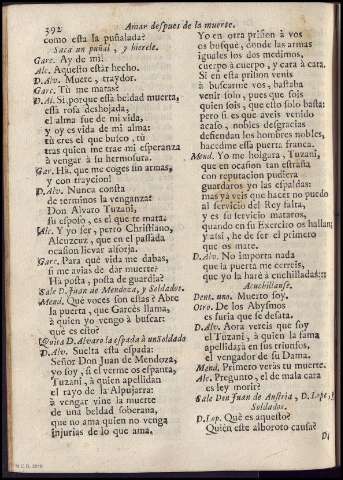 392 Amar despues de la muerte.
como esta la puñalada?
Saca un puñal, y hierele.
Garc. Ay de mi!
Alc. Aquesto estàr hecho.
D. Alv. Muere, traydor.
Garc. Tù me matas?
D. Al. Si, porque essa beldad muerta,
essa rosa deshojada,
el alma fue de mi vida,
y oy es vida de mi alma:
tù eres el que busco, tù
tras quien me trae mi esperanza
à vengar à su hermosura.
Gar. Ha, que me coges sin armas,
y con traycion!
D. Alv. Nunca consta
de terminos la venganza:
Don Alvaro Tuzanì,
su esposo, es el que te mata.
Alc. Y yo ser, perro Christiano,
Alcuzcuz, que en el passada
ocasion llevar alforja.
Garc. Para què vida me dabas,
si me avias de dàr muerte?
Ha posta, posta de guarda!
Sale D. Juan de Mendoza, y Soldados.
Mend. Què voces son estas? Abre
la puerta, que Garcès llama,
à quien yo vengo à buscar:
què es esto?
Quita D. Alvaro la espada à un Soldado
D. Alv. Suelta essa espada:
Señor Don Juan de Mendoza,
yo soy, si el verme os espanta,
Tuzanì, à quien apellidan
el rayo de la Alpujarra:
à vengar vine la muerte
de una beldad soberana,
que no ama quien no venga
injurias de lo que ama.
Yo en otra prision à vos
os busquè, donde las armas
iguales los dos medimos,
cuerpo à cuerpo, y cara à cara.
Si en esta prision venis
à buscarme vos, bastaba
venir solo, pues que sois
quien sois, que esto solo basta:
pero si es que aveis venido
acaso, nobles desgracias
defiendan los hombres nobles,
hacedme essa puerta franca.
Mend. Yo me holgara, Tuzanì,
que en ocasion tan estraña
con reputacion pudiera
guardaros yo las espaldas:
mas yà veis que hacer no puedo
al servicio del Rey falta,
y es su servicio mataros,
quando en su Exercito os hallan;
y assi, he de ser el primero
que os mate.
D. Alv. No importa nada
que la puerta me cerreis,
que yo la harè à cuchilladas:::
Acuchillanse.
Dent. uno. Muerto soy.
Otro. De los Abysmos
es furia que se desata.
D. Alv. Aora vereis que soy
el Tuzanì, à quien la fama
apellidarà en sus triunfos,
el vengador de su Dama.
Mend. Primero veràs tu muerte.
Alc. Pregunto, el de mala cara
es ley morir?
Sale Don Juan de Austria, D. Lope, y
Soldados.
D. Lop. Què es aquesto?
Quièn este alboroto causa?